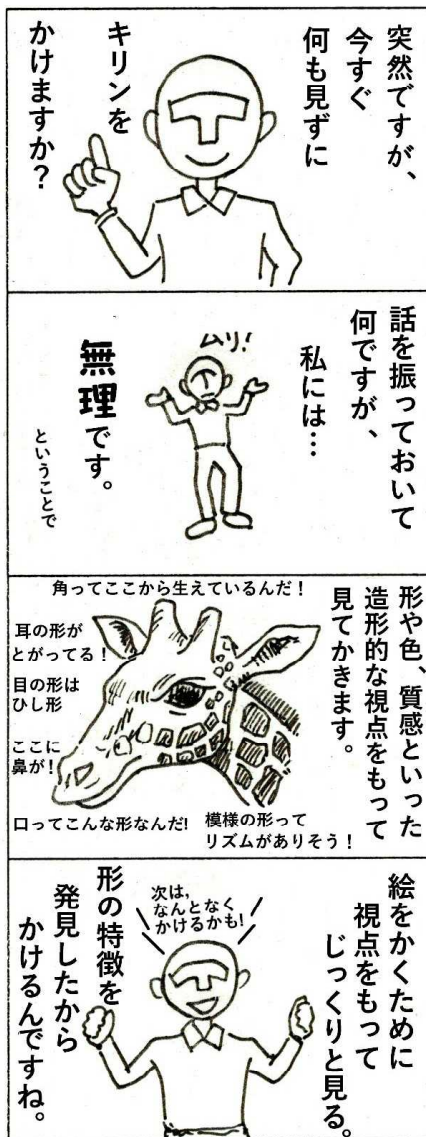 突然ですが、
今すぐ
何も見ずに
キリンを
かけますか？
話を振っておいて
何ですが、
私には…
ムリ!
無理です。
ということで
形や色、質感といった
造形的な視点をもって
見てかきます。
角ってここから生えているんだ！
耳の形が
とがってる！
目の形は
ひし形
ここに
鼻が!
口ってこんな形なんだ!
模様の形って
リズムがありそう！
絵をかくために
視点をもって
じっくりと見る。
次は,
なんとなく
かけるかも!
形の特徴を
発見したから
かけるんですね。